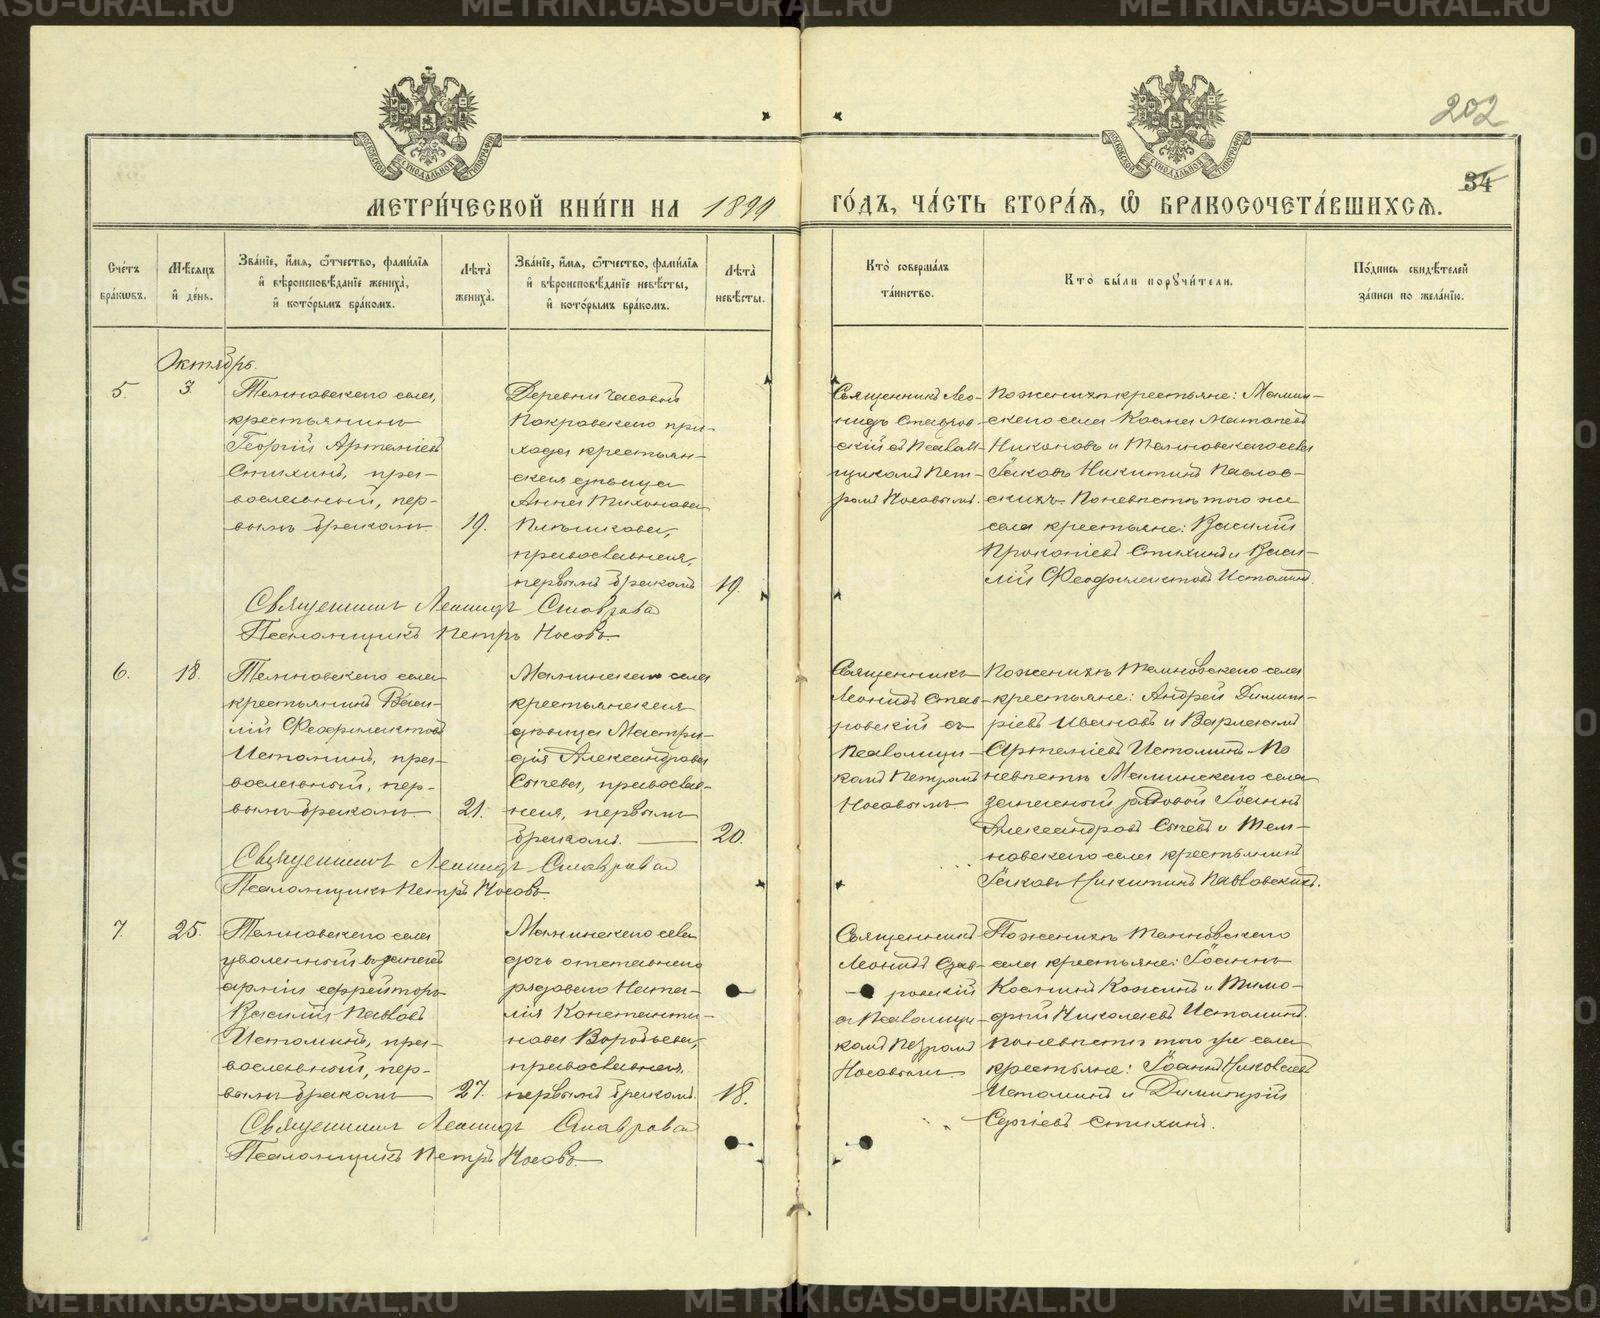 202
34
МОСКОВСКОЙ СѴНОДАЛЬНОЙ ТИПОГРАФІИ
МОСКОВСКОЙ СѴНОДАЛЬНОЙ ТИПОГРАФІИ
МЕТРИ́ЧЕСКОЙ КНИ́ГИ НА 1899
ГО́ДЪ, ЧА́СТЬ ВТОРА́Ѧ, Ѡ БРАКОСОЧЕТА́ВШИХСѦ.
Сче́тъ бра́кѡвъ.
Мѣ́сяцъ и де́нь.
Зва́нїе, и́мѧ, ѻ́тчество, фами́лїѧ и вѣроисповѣ́данїе жениха̀, и кото́рымъ бра́комъ.
Лѣта̀ жениха̀.
Зва́нїе, и́мѧ, ѻ́тчество, фами́лїѧ и вѣроисповѣ́данїе невѣ́сты, и кото́рымъ бра́комъ.
Лѣта̀ невѣ́сты.
Кто̀ соверша́лъ та́инство.
Кто̀ бы́ли порꙋчи́тели.
По́дпись свидѣ́телей за́писи по жела́нїю.
Октябрь.
5.
3.
Темновскаго села,
крестьянинъ
Георгій Артеміевъ
Стихинъ, пра-
вославный, пер-
вымъ бракомъ
19.
Деревни Часовой
Покровскаго при-
хода крестьян-
ская дѣвица
Анна Тихонова
Плѣшкова,
православная,
первымъ бракомъ
19.
Священникъ Лео-
нидъ Ставров-
скій съ Псалом-
щикомъ Пет-
ромъ Носовымъ.
По женихѣ крестьяне: Мамин-
скаго села Косма Матѳеевъ
Никоновъ и Темновскаго села
Іаковъ Никитинъ Павлов-
скихъ. По невѣстѣ того же
села крестьяне: Василій
Прокопіевъ Стихинъ и Васи-
лій Феофилактовъ Истоминъ.
Священникъ Леонидъ Ставровскій
Псаломщикъ Петръ Носовъ.
6.
18.
Темновскаго села
крестьянинъ Васи-
лій Феофилактовъ
Истоминъ, пра-
вославный, пер-
вымъ бракомъ
21.
Маминскаго села
крестьянская
дѣвица Мастри-
дія Александрова
Сычева, православ-
ная, первымъ
бракомъ.
20.
Священникъ
Леонидъ Став-
ровскій съ
Псаломщи-
комъ Петромъ
Носовымъ.
По женихѣ Темновскаго села
крестьяне: Андрей Димит-
ріевъ Ивановъ и Варлаамъ
Артеміевъ Истоминъ. По
невѣстѣ Маминскаго села
запасный рядовой Іоаннъ
Александровъ Сычевъ и Тем-
новскаго села крестьянинъ
Іаковъ Никитинъ Павловскихъ.
Священникъ Леонидъ Ставровскій
Псаломщикъ Петръ Носовъ.
7.
25.
Темновскаго села
уволенный въ запасъ
арміи ефрейторъ
Василій Павловъ
Истоминъ, пра-
вославный, пер-
вымъ бракомъ
27.
Маминскаго села
дочь отставнаго
рядового Ната-
лія Константи-
нова Воробьева,
православная,
первымъ бракомъ.
18.
Священникъ
Леонидъ Став-
ровскій
съ Псаломщи-
комъ Петромъ
Носовымъ.
По женихѣ Темновскаго
села крестьяне: Іоаннъ
Косминъ Кожинъ и Тимо-
фей Николаевъ Истоминъ.
По невѣстѣ того же села
крестьяне: Іоаннъ Николаевъ
Истоминъ и Димитрій
Сергіевъ Стихинъ.
Священникъ Леонидъ Ставровскій
Псаломщикъ Петръ Носовъ.
METRIKI.GASO-URAL.RU